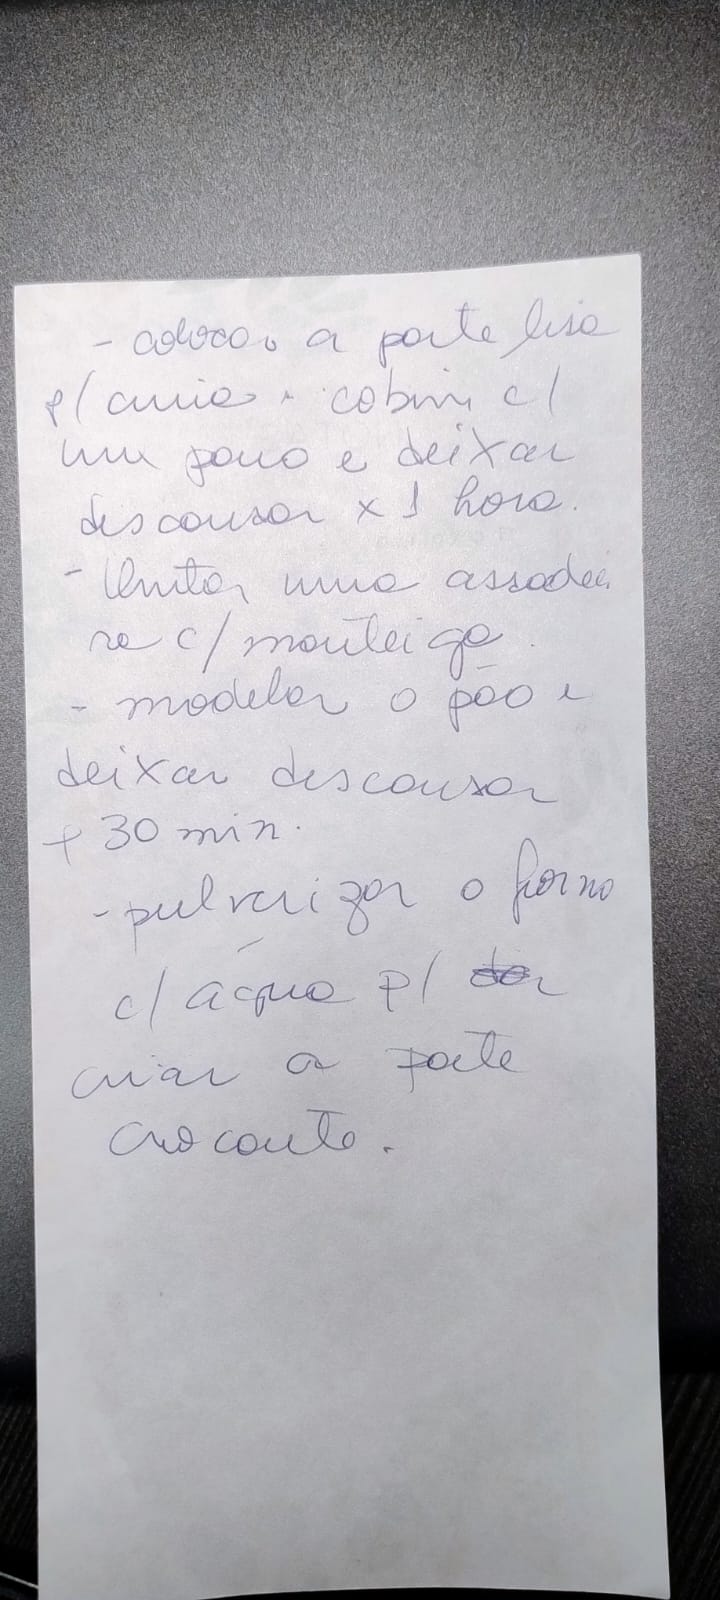 - colocar a parte lisa
p/ cima. cobrir c/
um pano e deixar
descansar x 1 hora.
- Untar uma assadei
ra c/ manteiga.
- modelar o pão e
deixar descansar
+ 30 min.
- pulverizar o forno
c/ água p/
criar a parte
crocante.